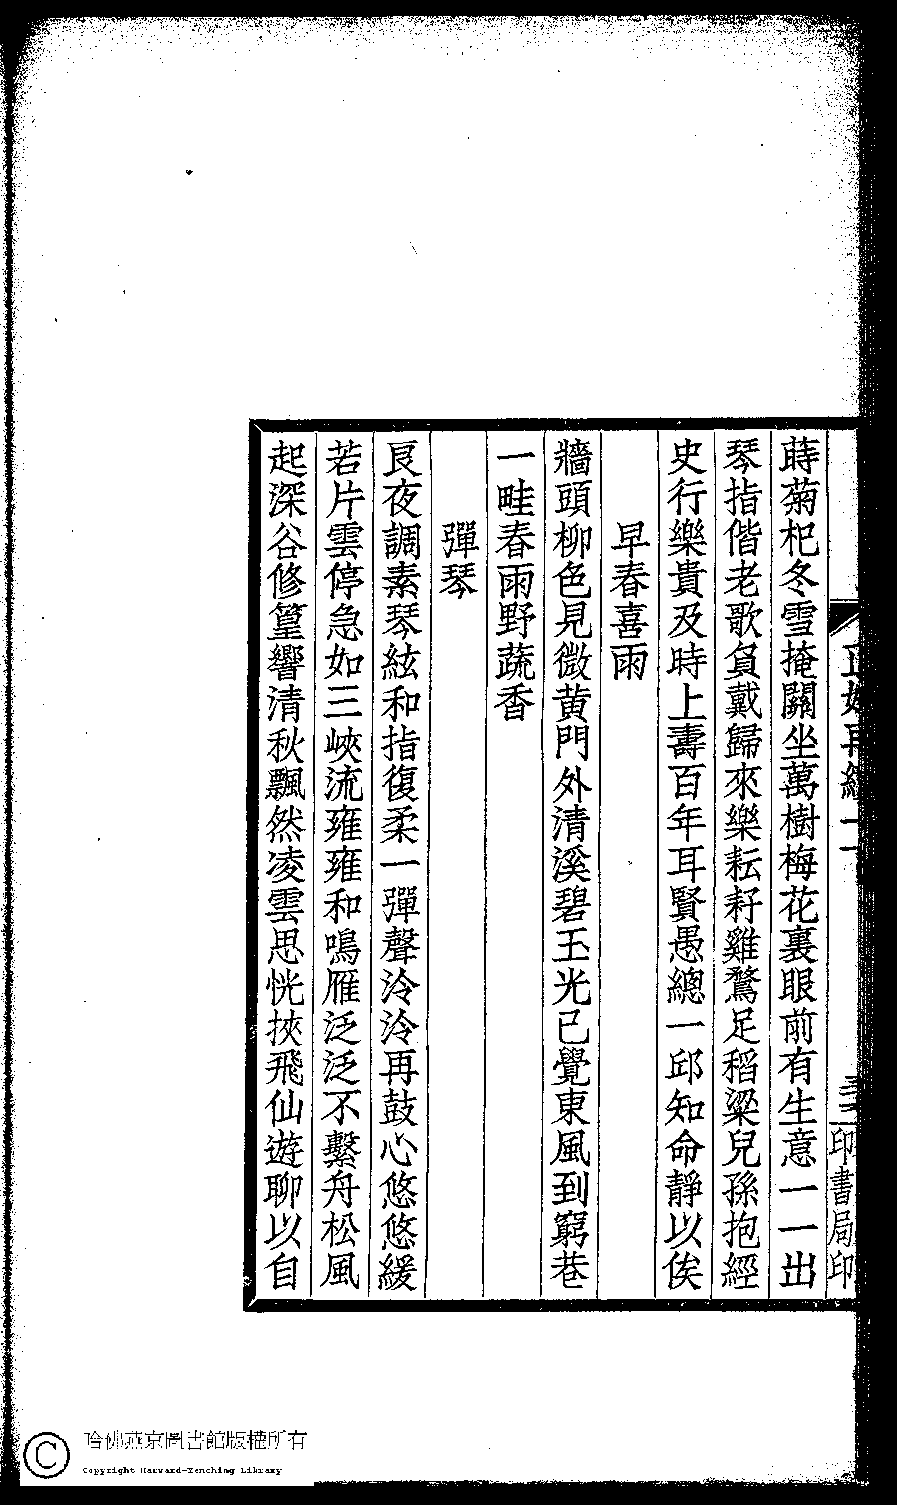 正始再續二
印書局印
蒔菊杞冬雪掩關坐萬樹梅花裏眼前有生意一一出
琴指偕老歌負戴歸來樂耘耔雞鶩足稻粱兒孫抱經
史行樂貴及時上壽百年耳賢愚總一邱知命靜以俟
早春喜雨
牆頭柳色見微黄門外清溪碧玉光已覺東風到窮巷
一畦春雨野蔬香
彈琴
良夜調素琴絃和指復柔一彈聲泠泠再鼓心悠悠緩
若片雲停急如三峽流雍雍和鳴雁泛泛不繫舟松風
起深谷修篁響清秋飄然凌雲思恍挾飛仙遊聊以自
哈佛燕京圖書館版權所有
Copyright Harvard-Yenching Library